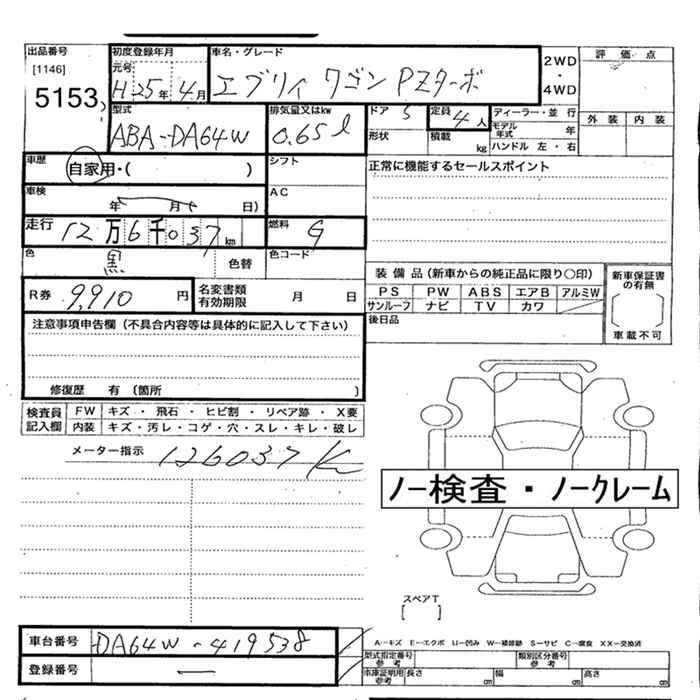 出品番号
[1146]
5153
初度登録年月
元号
H 25年 4月
車名・グレード
エブリィ ワゴン PZターボ
2WD
・
4WD
評 価 点
外 装 内 装
型式
ABA-DA64W
排気量又はkw
0.65ℓ
ドア 5
形状
定員
4人
積載 kg
ディーラー・並 行
モデル年式 年
ハンドル 左・右
車歴
自家用・( )
シフト
正常に機能するセールスポイント
車検
年 月( 日)
AC
走行
12万6千037km
燃料
G
色
黒
色替
色コード
R券 9,910 円
名変書類有効期限 月 日
装 備 品 (新車からの純正品に限り〇印)
PS PW ABS エアB アルミW
サンルーフ ナビ TV カワ
後日品
新車保証書の有無
車載不可
注意事項申告欄 (不具合内容等は具体的に記入して下さい)
修復歴 有 (箇所 )
検査員記入欄
FW キズ ・ 飛石 ・ ヒビ割 ・ リペア跡 ・ X要
内装 キズ・汚レ・コゲ・穴・スレ・キレ・破レ
メーター指示 126037K
ノー検査・ノークレーム
スペアT
[ ]
車台番号 DA64W-419538
登録番号 —
A―キズ E―エクボ U―凹み W―補修跡 S―サビ C―腐食 XX―交換済
型式指定番号参考
類別区分番号参考
車庫証明用参考 長さ cm 幅 cm 高さ cm